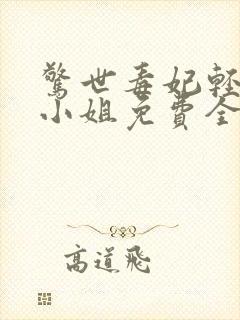 驚世毒妃輕
小姐免費全
高道飛